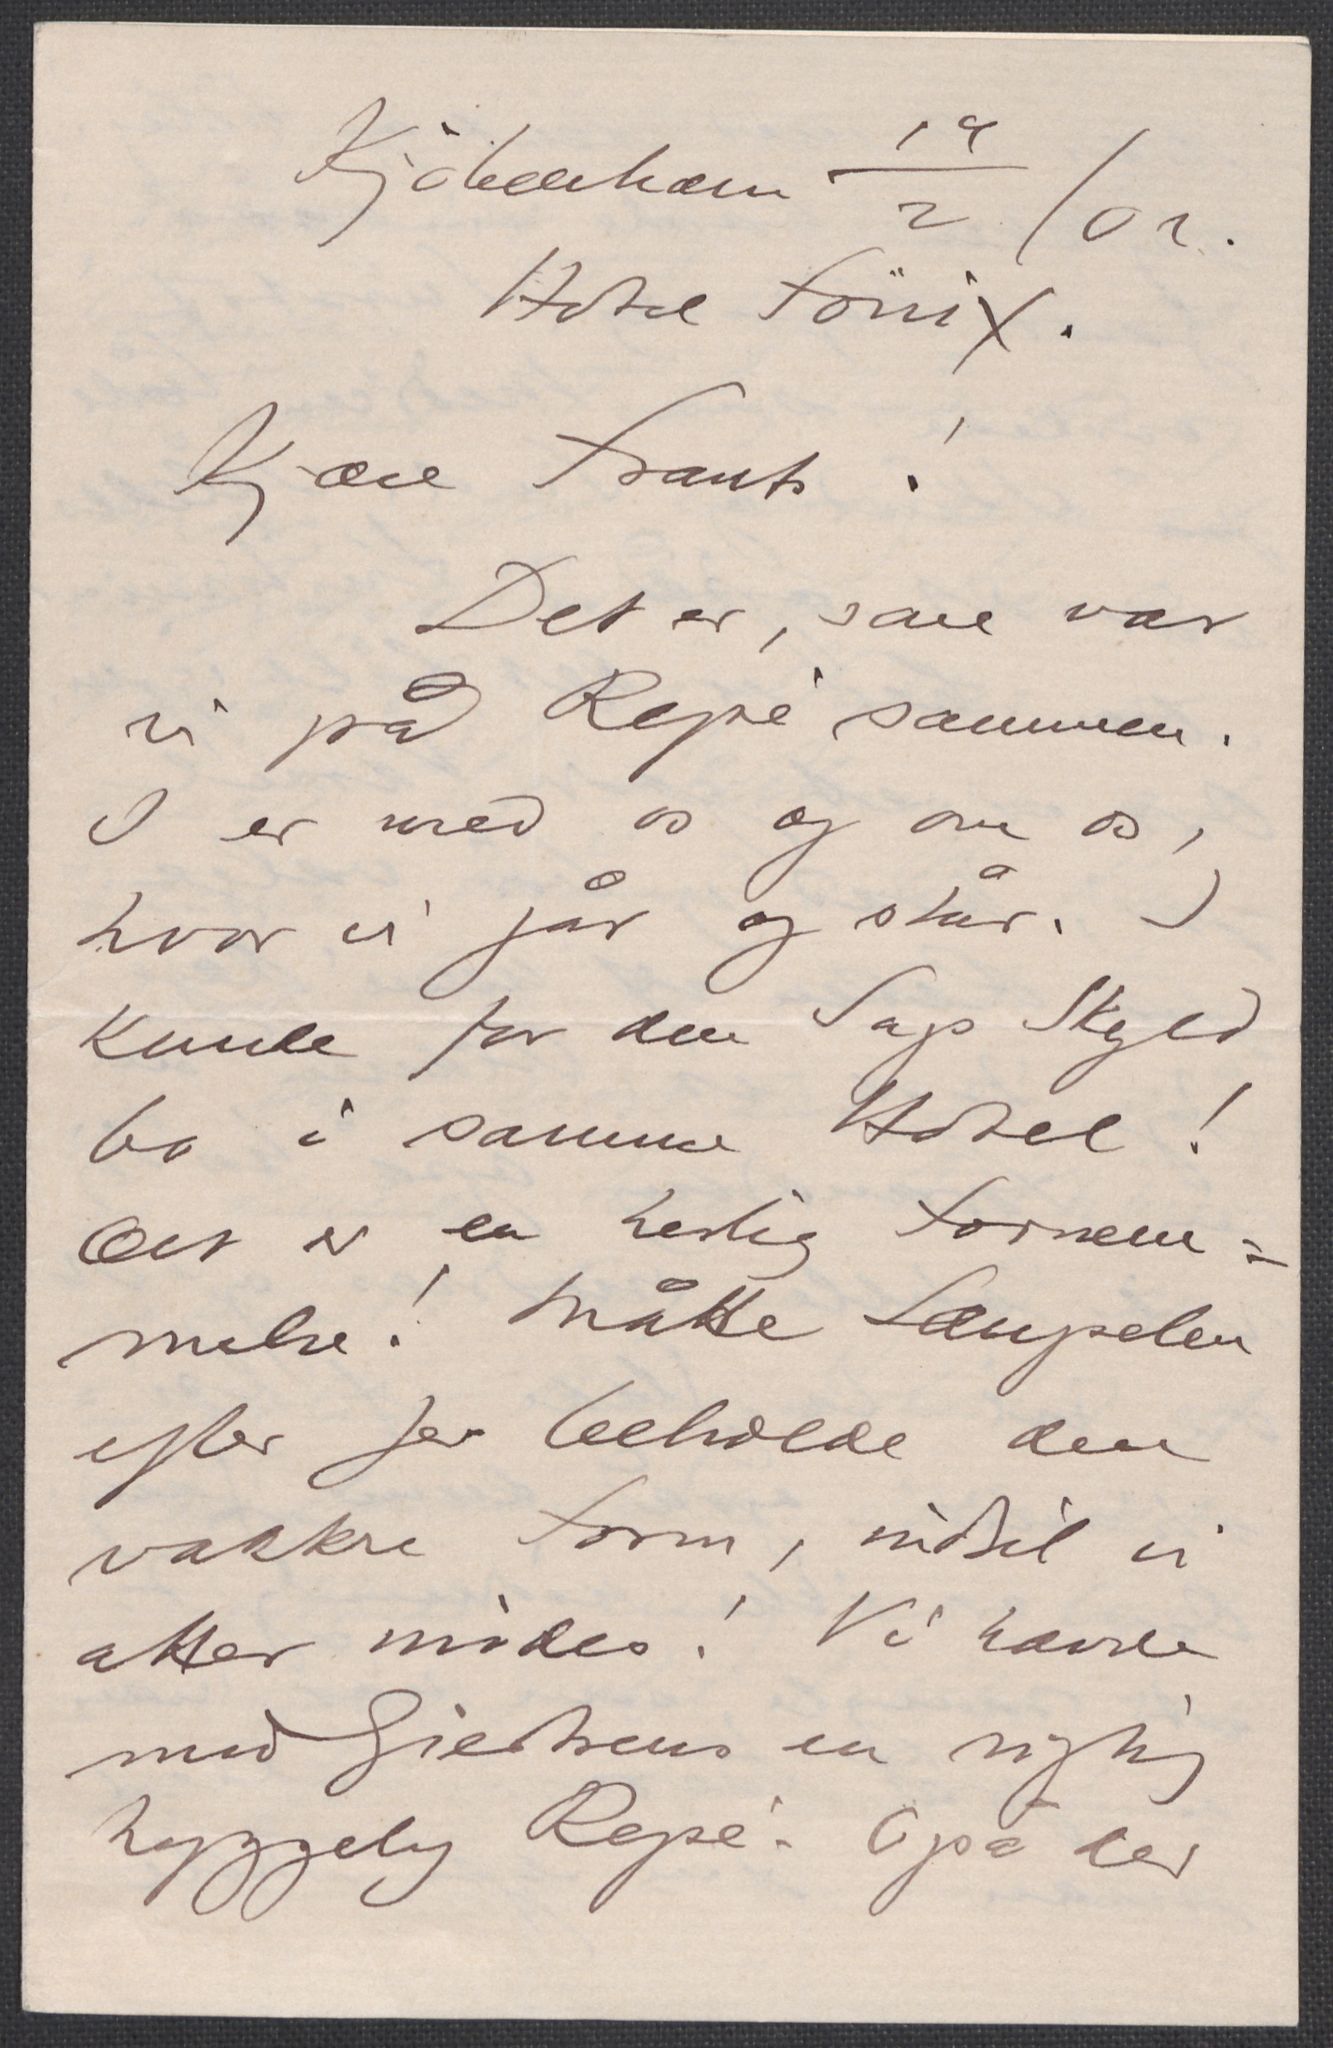 Kjöbenhavn 19/2/02.
Hotel Fönix.
Kjære Frants!
Det er, som var
vi på Rejse sammen.
I er med os og om os,
hvor vi går og står. I
kunde for den Sags Skyld
bo i samme Hotel!
Det er en herlig Fornem=
melse! Måtte Længselen
efter Jer beholde den
vakkre Form, indtil vi
atter mødes! Vi havde
med Giertsens en rigtig
hyggelig Rejse. Også der